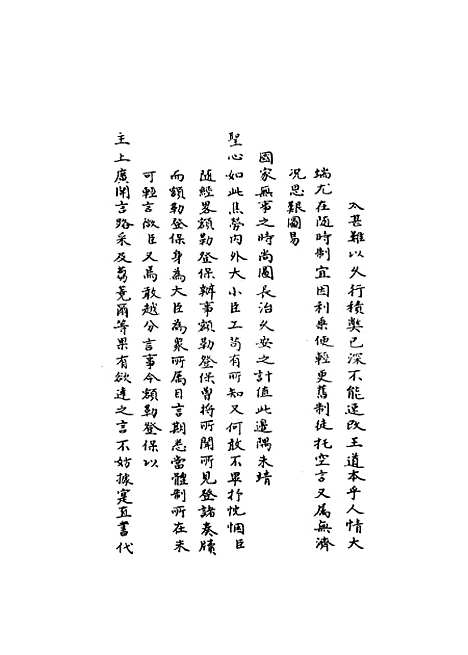 太甚難以久行積獘已深不能遽改王道本乎人情大
端尤在随時制宜因利乗便輕更舊制徒托空言又属無濟
况思艱圖易
國家無事之時尚圖長治久安之計值此邊隅未靖
聖心如此焦勞内外大小臣工苟有所知又何敢不畢抒忱悃臣
随經畧額勒登保辦事額勒登保曽將所聞所見登諸奏牘
而額勒登保身為大臣為衆所属目言期悉當體制所在未
可輕言微臣又焉敢越分言事今額勒登保以
主上廣開言路采及蒭蕘爾等果有欲達之言不妨據寔直書代